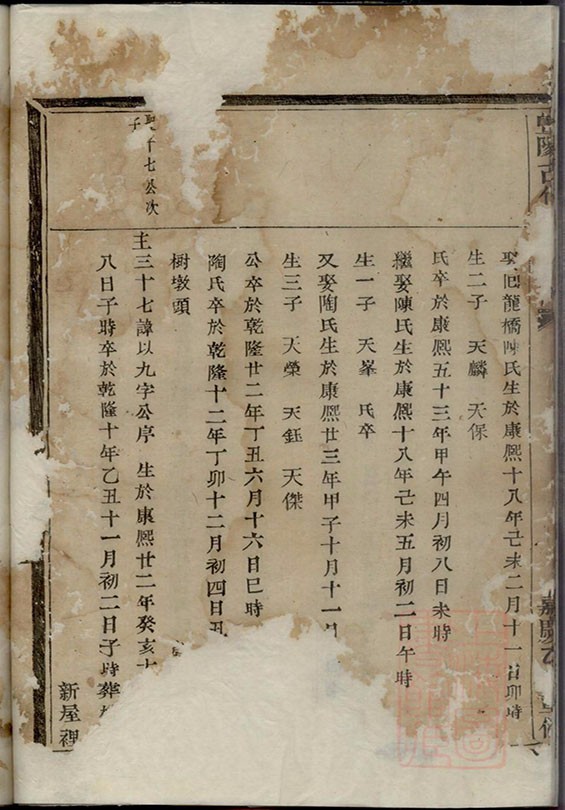 娶回龍橋陳氏生於康熙十八年己未二月十一日卯時
生二子 天麟 天保
氏卒於康熙五十三年甲午四月初八日未時
繼娶陳氏生於康熙十八年己未五月初二日午時
生一子 天峯 氏卒
又娶陶氏生於康熙廿三年甲子十月十一
生三子 天榮 天鈺 天傑
公卒於乾隆廿二年丁丑六月十六日巳時
陶氏卒於乾隆十二年丁卯十二月初四日丑
樹墩頭
千七公次
子
主三十七諱以九字公序 生於康熙廿二年癸亥十
八日子時卒於乾隆十年乙丑十一月初二日子時葬
新屋裡